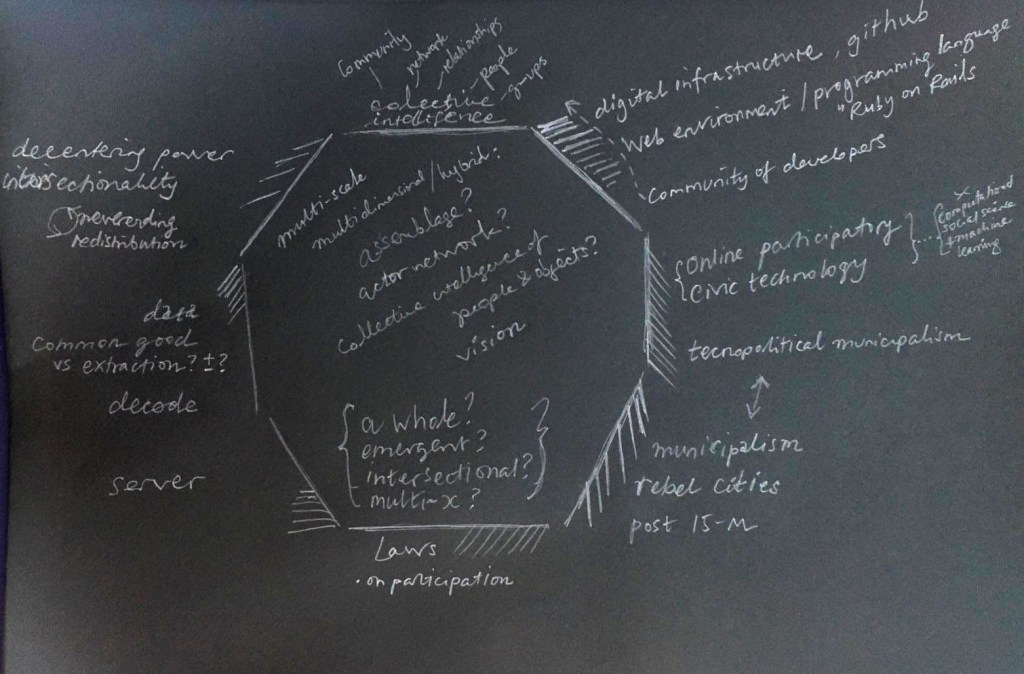 Community
network
relationships
people
groups
colective
intelligence
digital infrastructure, github
Web environment / programming language
"Ruby on Rails
Community of developers
decentering power
intersectionality
neverending
redistribution
multi-scale
multidimensional / hybrid:
assemblage?
actor network?
collective intelligence of
people & objects?
vision
{ Online participatory } ....
civic technology
x
computational
social science
+ machine
learning
data
common good
vs extraction? ±?
decode
server
tecnopolitical municipalism
municipalism
rebel cities
post 15-M
{ a whole? }
emergent?
intersectional?
multi-x?
Laws
· on participation